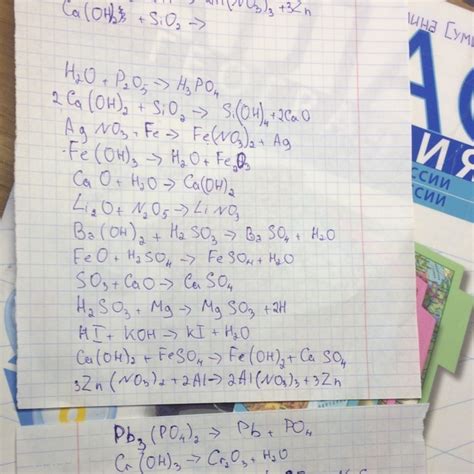 2Al(NO₃)₃ + 3Zn
Ca(OH)₂ + SiO₂ →
H₂O + P₂O₅ → H₃PO₄
2Ca(OH)₂ + SiO₂ → Si(OH)₄ + 2CaO
AgNO₃ + Fe → Fe(NO₃)₂ + Ag
Fe(OH)₃ → H₂O + Fe₂O₃
CaO + H₂O → Ca(OH)₂
Li₂O + N₂O₅ → LiNO₃
Ba(OH)₂ + H₂SO₃ → BaSO₄ + H₂O
FeO + H₂SO₄ → FeSO₄ + H₂O
SO₃ + CaO → CaSO₄
H₂SO₃ + Mg → MgSO₃ + 2H
HI + KOH → KI + H₂O
Ca(OH)₂ + FeSO₄ → Fe(OH)₂ + CaSO₄
3Zn(NO₃)₂ + 2Al → 2Al(NO₃)₃ + 3Zn
Pb₃(PO₄)₂ → Pb + PO₄
Cr(OH)₃ → Cr₂O₃ + H₂O
ИЯ
ССИИ
ССИИ